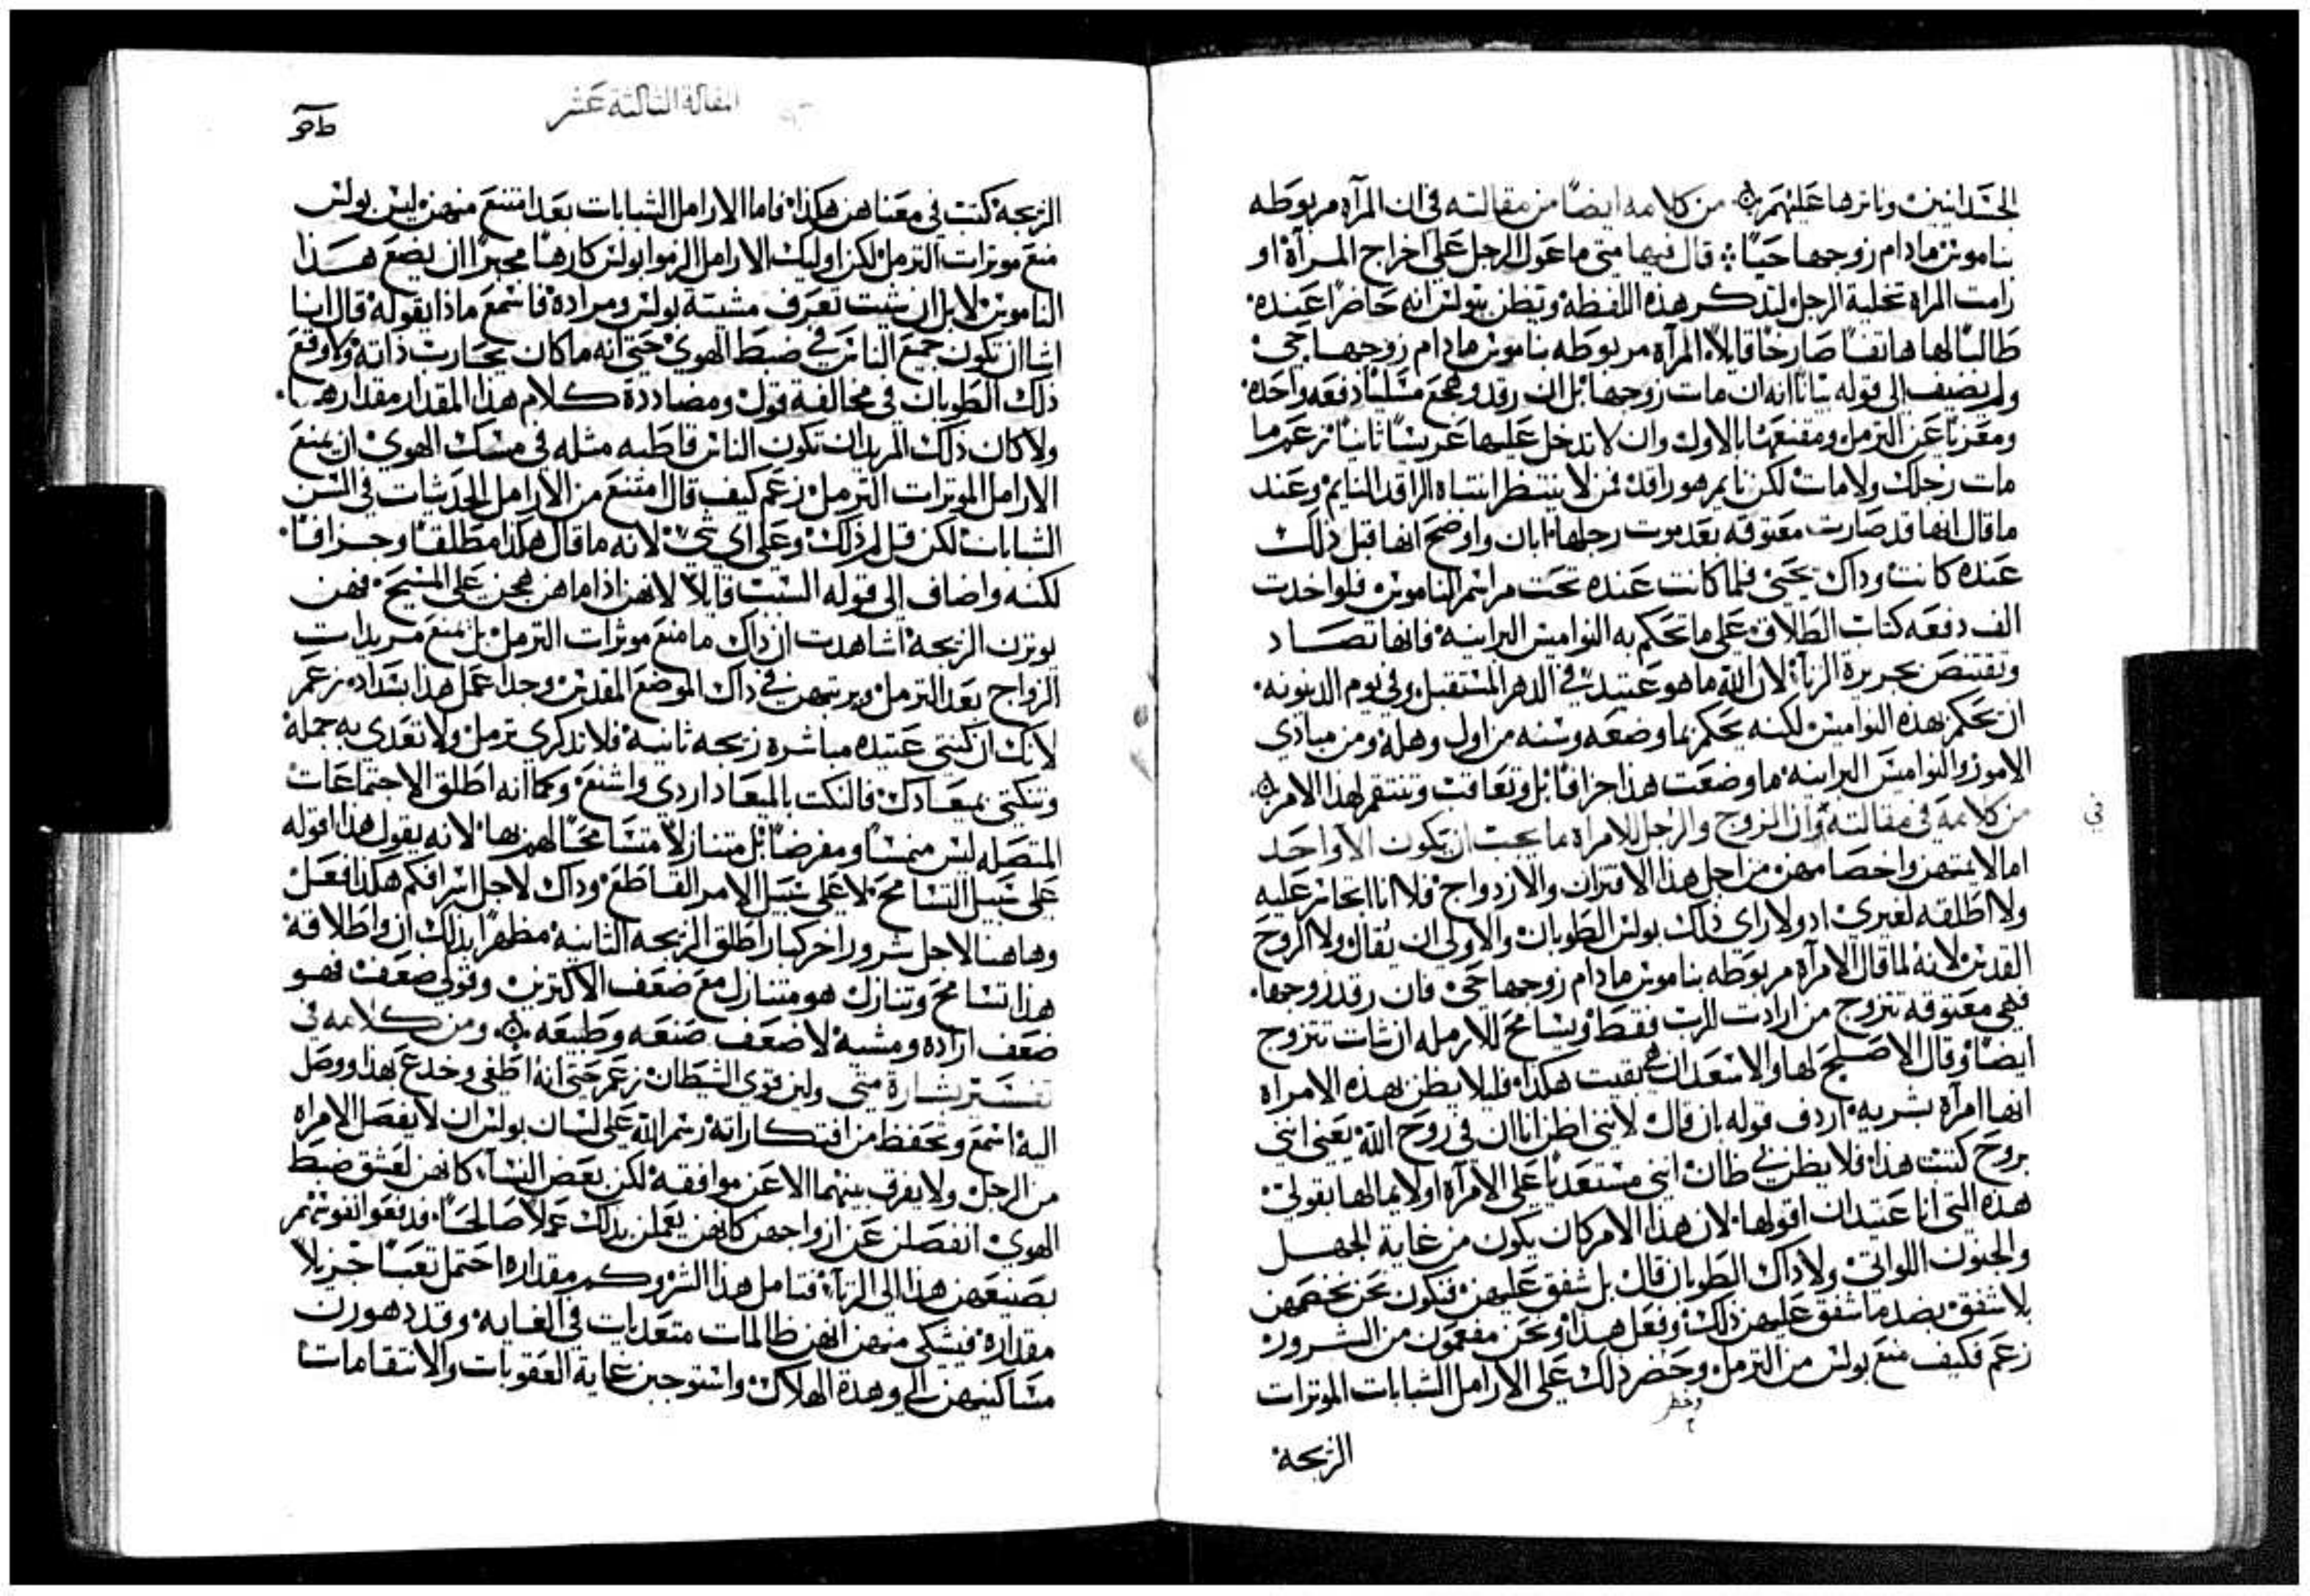 الجسدانيين وناثرها عليهم من كلامه ايضًا من مقالته في ان المرآه مربوطه
بناموس مادام زوجها حيًا قال فيها متى ما عول الرجل على اخراج المرآة او
رامت المراه تخلية الرجل لتذكر هذه اللفظه وتظن بولس انه حاضرًا عنده
طالبًا لها هاتفًا صارخًا قايلًا المرآه مربوطه بناموس مادام زوجها حي
ولم يضيف الى قوله بيانًا انه ان مات زوجها بل ان رقد وهجع مسليًا دفعه واحده
ومعزيًا عن الترمل ومقنعها بالاول وان لا تدخل عليها عريسًا ثانيًا زعم ما
مات رجلك ولا مات لكن نايم هو راقد فمن لا ينتظر انتباه الراقد النايم وعند
ما قال انها قد صارت معتوقه بعد موت رجلها ابان واوضح انها قبل ذلك
عنده كانت وداك يحيى فلما كانت عنده تحت مراسم الناموس فلو اخدت
الف دفعه كتاب الطلاق على ما تحكم به النواميس البرانيه فانها تصاد
وتقتنص بجريرة الزنآ لان الله ما هو عتيد في الدهر المستقبل وفي يوم الدينونه
ان يحكم بهذه النواميس لكنه يحكم بما وضعه وسنه من اول وهلة ومن مبادي
الامور والنواميس البرانيه ما وضعت هذا جزافًا بل وتعاقب وتنتقم لهذا الامر
من كلامه في مقالته وان الزوج والرجل للامراة ما يجب ان يكون الا واحد
في
اما لا يمتهن واخصامهن من اجل هذا الاقتران والازدواج فلا انا اتجاسر عليه
ولا اطلقه لغيري اد ولا راى ذلك بولس الطوبان والاولى ان يقال ولا الروح
القدس لانه لما قال الامرآه مربوطه بناموس مادام زوجها حي فان رقد زوجها
فهي معتوقه تتزوج من ارادت بالرب فقط ويسامح للارمله ان شات تتزوج
ايضًا وقال الاصلح لها والاسعد ان هي بقيت هكذا فليلا يظن بهذه الامراه
انها امرآة بشريه اردف قوله بان قال لانني اظن انا ان في روح الله يعني انني
بروح كتبت هذا فلا يظن بي ظان انني مستعديًا على الامرآه اولايمًا لها بقولي
هذه التي انا عتيد ان اقولها لان هذا الامر كان يكون من غاية الجهل
والجنون اللواتي ولا داك الطوبان قال بل شفق عليهن فنكون نحن نخضمهن
بلا شفق بضد ما شفق عليهن ذلك وفعل هذا ونحن مفعمون من الشرور
زعم فكيف منع بولس من الترمل وحضر ذلك على الارامل الشابات الموثرات
وحظر
الزيجة
المقالة الثالثة عشر
الزيجة كتب في معناهن هكذا فاما الارامل الشابات بعد امتنع منهن ليس بولس
منع موثرات الترمل لكن اوليك الارامل الزموا بولس كارهًا مجبرًا ان يضع هذا
الناموس لا بل ان شيت تعرف مشيئة بولس ومراده فاسمع ماذا يقوله قال انا
اشا ان تكون جميع الناس في ضبط الهوي حتى انه ما كان يحارب ذاته ولا وقع
ذلك الطوبان في مخالفة قول ومضاددة كلام هذا المقدار مقدارها
ولا كان ذلك المريد ان تكون الناس قاطبه مثله في مسك الهوي ان يمنع
الارامل الموثرات الترمل زعم كيف قال امتنع من الارامل الحدثات في السن
الشابات لكن قل لم ذلك وعلى اي شي لانه ما قال هكذا مطلقًا وجزافًا
لكنه واضاف الى قوله السبب قايلًا لانهن اذا ما هن هجن على المسيح فهن
يوثرن الزيجة اشاهدت ان ذاك ما منع موثرات الترمل بل منع مريدات
الزواج بعد الترمل ويرتبهن في ذاك الموضع المقدس وجدا عمل هذا بسداد زعم
لانك ان كنتي عتيده مباشرة زيجه ثانية فلا تذكري ترمل ولا تعدي به جملة
وتنكثي بميعادك فالنكث بالميعاد اردي واشنع وكما انه اطلق الاجتماعات
المتصله ليس منمسًا ومفرضًا بل متنازلًا متسامحًا لهم بها لانه يقول هذا اقوله
على سبيل التسامح لا على سبيل الامر القاطع وداك لاجل اسرافكم هكذا فعل
وهاهنا لاجل شرور اخر كبار اطلق الزيجه الثانيه مظهرًا بذلك ان واطلاقه
هذا تسامح وتنازل هو متنازل مع ضعف الاكثرين وقولي ضعف فهو
ضعف ارادة ومشية لا ضعف صنعه وطبيعه ومن كلامه في
تفسير بشارة متى ولين قوي الشيطان زعم حتى انه اطغى وخدع بهذا ووصل
اليه اسمع وتحفظ من افتكاراته رسم الله على لسان بولس ان لا يفصل الامراه
من الرجل ولا يفرق بينهما الا عن موافقه لكن بعض النسآ كانهن لعشق ضبط
الهوي انفصلن عن ازواجهن كانهن يعملن بذلك عملًا صالحًا فدفعوا نفوسهم
بصنيعهن هذا الى الزنآ فتامل هذا الشر وكم مقداره احتمل تعبًا جزيلًا
مقداره فيشكى منهن انهن ظالمات متعديات في الغايه وقد دهورن
مساكنيهن الى وهدة الهلاك واستوجبن غاية العقوبات والانتقامات